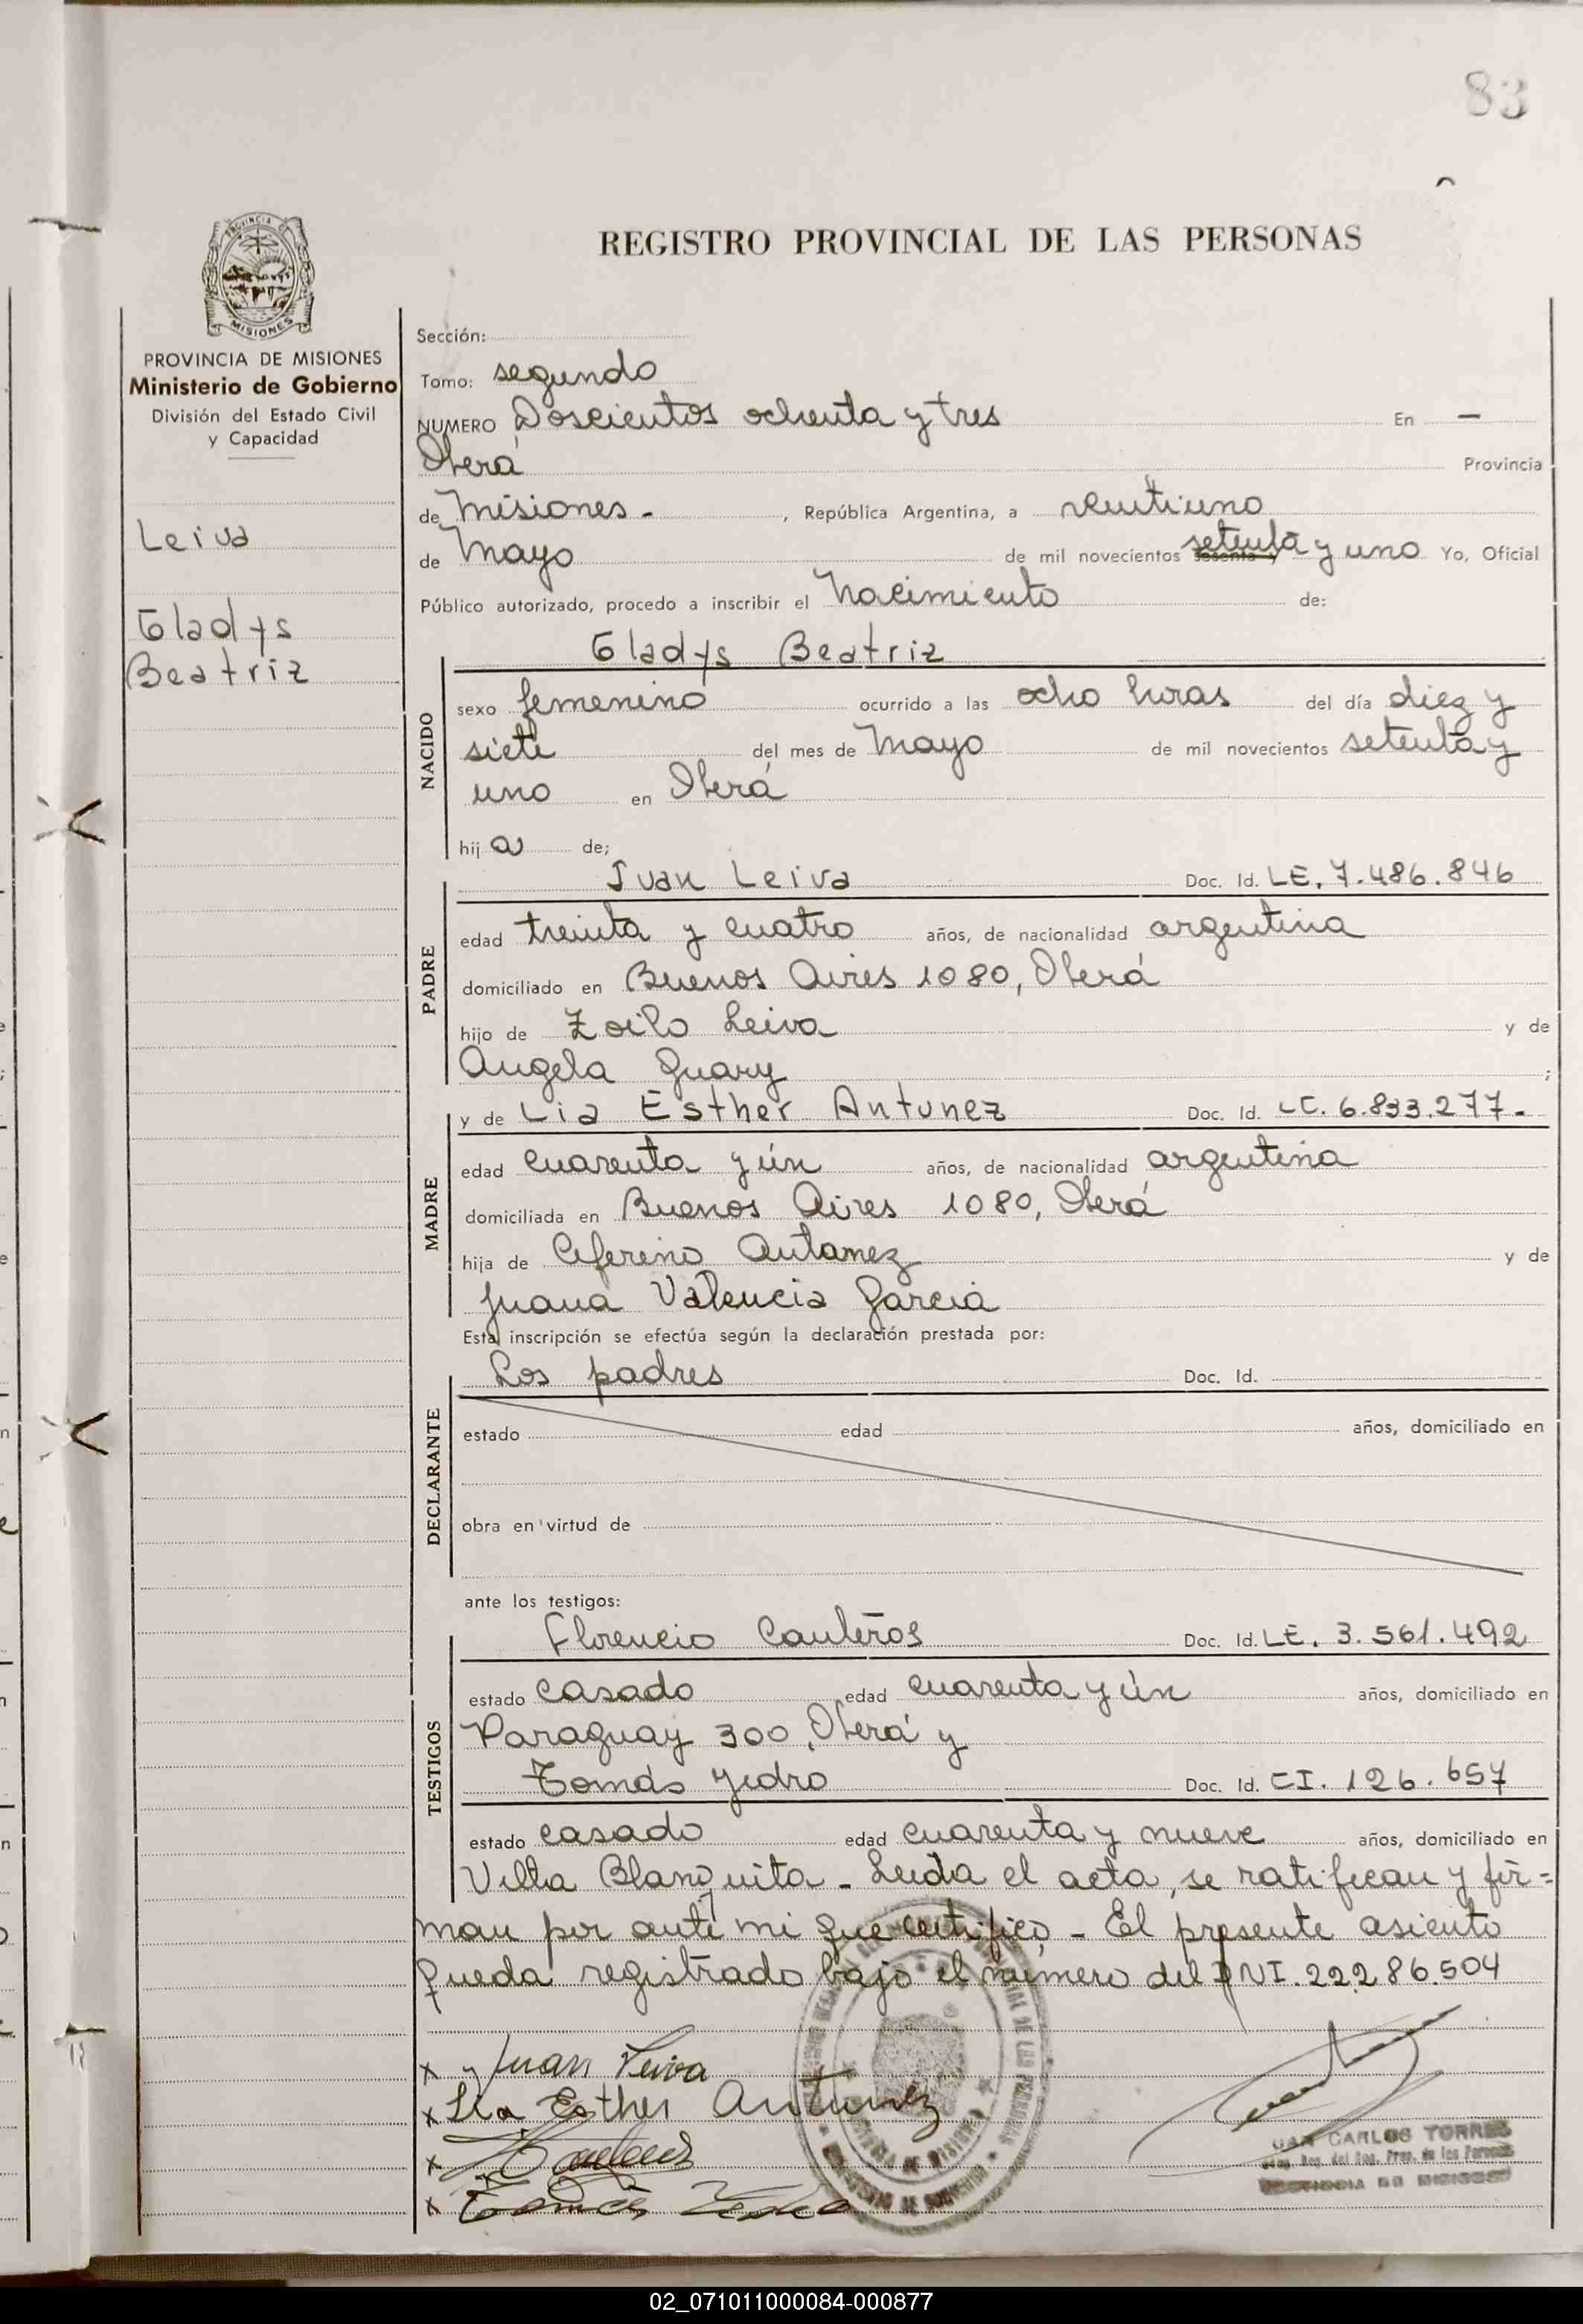 83
REGISTRO PROVINCIAL DE LAS PERSONAS
PROVINCIA DE MISIONES
Ministerio de Gobierno
División del Estado Civil
y Capacidad
Leiva
Gladys
Beatriz
Sección:
Tomo: segundo
NUMERO Doscientos ochenta y tres En —
Oberá Provincia
de Misiones - , República Argentina, a veintiuno
de Mayo de mil novecientos setenta y uno Yo, Oficial
Público autorizado, procedo a inscribir el Nacimiento de:
Gladys Beatriz
NACIDO
sexo femenino ocurrido a las ocho horas del día diez y
siete del mes de Mayo de mil novecientos setenta y
uno en Oberá
hij a de;
Juan Leiva Doc. Id. LE. 7.486.846
PADRE
edad treinta y cuatro años, de nacionalidad argentina
domiciliado en Buenos Aires 1080, Oberá
hijo de Zoilo Leiva y de
Angela Guary ;
y de Lia Esther Antunez Doc. Id. LC. 6.833.277.-
MADRE
edad cuarenta y ún años, de nacionalidad argentina
domiciliada en Buenos Aires 1080, Oberá
hija de Ceferino Antanez y de
Juana Valencia Garcia
Esta inscripción se efectúa según la declaración prestada por:
Los padres Doc. Id.
DECLARANTE
estado edad años, domiciliado en
obra en virtud de
ante los testigos:
Florencio Doc. Id. LE. 3.561.492
TESTIGOS
estado casado edad cuarenta y ún años, domiciliado en
Paraguay 300, Oberá y
Tomás Yedro Doc. Id. CI. 126.657
estado casado edad cuarenta y nueve años, domiciliado en
Villa Blanquita - Leida el acta, se ratifican y fir=
man por ante mi que certifico - El presente asiento
queda registrado bajo el número del DNI. 22.286.504
x Juan Leiva
x Lia Esther Antunez
x
x Tomás Yedro
JUAN CARLOS TORRES
PROVINCIA DE MISIONES
02_071011000084-000877